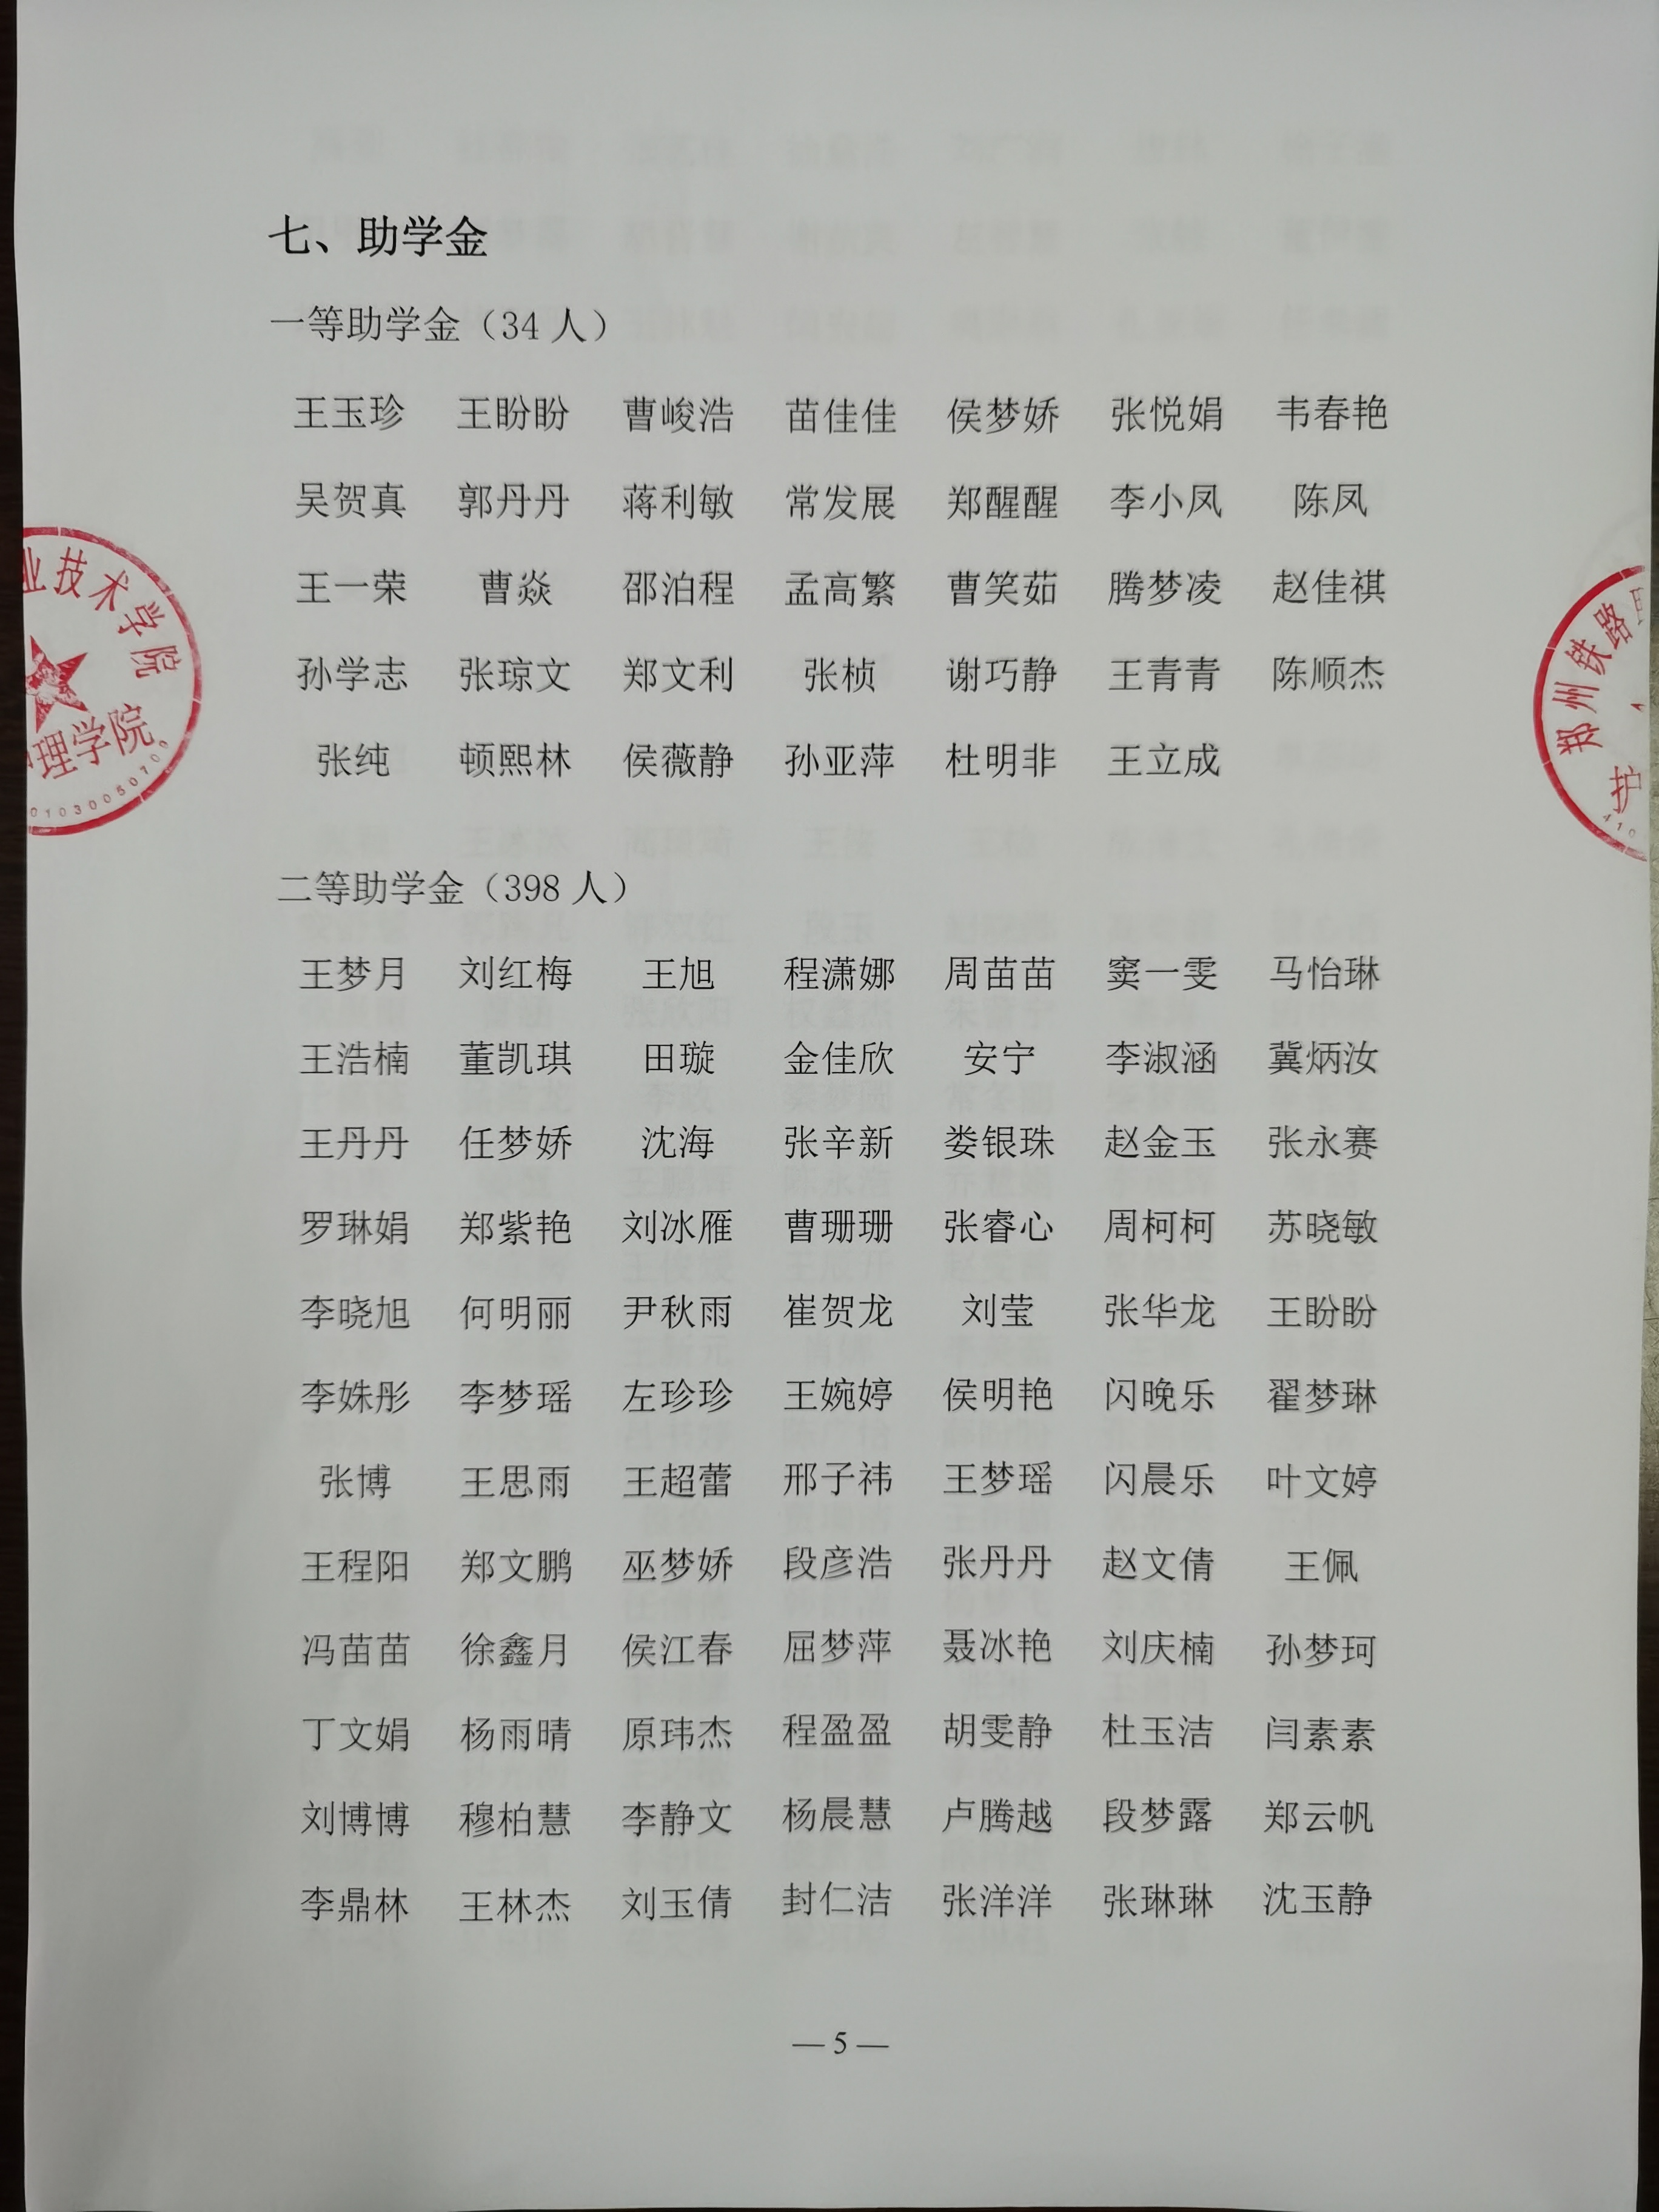 七、助学金
一等助学金（34 人）
王玉珍 王盼盼 曹峻浩 苗佳佳 侯梦娇 张悦娟 韦春艳
吴贺真 郭丹丹 蒋利敏 常发展 郑醒醒 李小凤 陈凤
王一荣 曹焱 邵泊程 孟高繁 曹笑茹 腾梦凌 赵佳祺
孙学志 张琼文 郑文利 张桢 谢巧静 王青青 陈顺杰
张纯 顿熙林 侯薇静 孙亚萍 杜明非 王立成
二等助学金（398 人）
王梦月 刘红梅 王旭 程潇娜 周苗苗 窦一雯 马怡琳
王浩楠 董凯琪 田璇 金佳欣 安宁 李淑涵 冀炳汝
王丹丹 任梦娇 沈海 张辛新 娄银珠 赵金玉 张永赛
罗琳娟 郑紫艳 刘冰雁 曹珊珊 张睿心 周柯柯 苏晓敏
李晓旭 何明丽 尹秋雨 崔贺龙 刘莹 张华龙 王盼盼
李姝彤 李梦瑶 左珍珍 王婉婷 侯明艳 闪晚乐 翟梦琳
张博 王思雨 王超蕾 邢子祎 王梦瑶 闪晨乐 叶文婷
王程阳 郑文鹏 巫梦娇 段彦浩 张丹丹 赵文倩 王佩
冯苗苗 徐鑫月 侯江春 屈梦萍 聂冰艳 刘庆楠 孙梦珂
丁文娟 杨雨晴 原玮杰 程盈盈 胡雯静 杜玉洁 闫素素
刘博博 穆柏慧 李静文 杨晨慧 卢腾越 段梦露 郑云帆
李鼎林 王林杰 刘玉倩 封仁洁 张洋洋 张琳琳 沈玉静
— 5 —
业技术学院
理学院
0103005010
郑州铁路
护
410